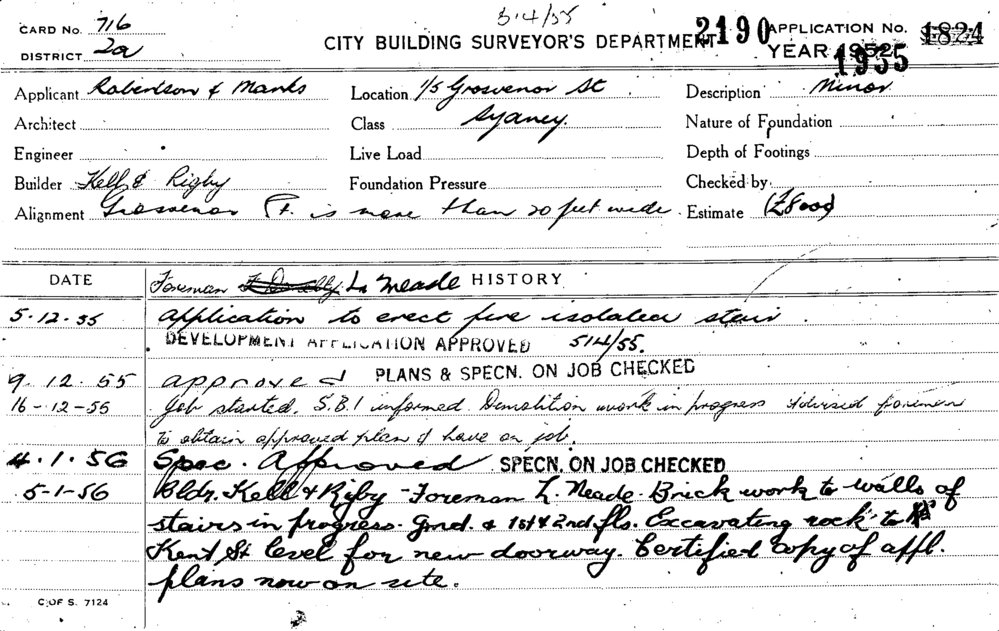 514/55
CARD No. 716
CITY BUILDING SURVEYOR'S DEPARTMENT
2190 APPLICATION No. 1824
DISTRICT 2a
YEAR 1952 1955
Applicant Robertson & Marks
Location 1/5 Grosvenor St
Description Minor
Architect
Class Sydney.
Nature of Foundation
Engineer
Live Load
Depth of Footings
Builder Kell & Rigby
Foundation Pressure
Checked by
Alignment Grosvenor St. is more than 20 feet wide.
Estimate (£8000)
DATE Foreman L. Meade HISTORY
5.12.55 Application to erect fire isolated stair.
DEVELOPMENT APPLICATION APPROVED 514/55.
9.12.55 approved PLANS & SPECN. ON JOB CHECKED
16-12-55 Job started. S.B.I informed. Demolition work in progress Advised foreman
to obtain approved plan & have on job.
4.1.56 Spec. Approved SPECN. ON JOB CHECKED
5-1-56 Bldr. Kell & Rigby - Foreman L. Meade. Brick work to walls of
stairs in progress. Grnd. & 1st & 2nd fls. Excavating rock to
Kent St level for new doorway. Certified copy of appl.
plans now on site.
C. OF S. 7124